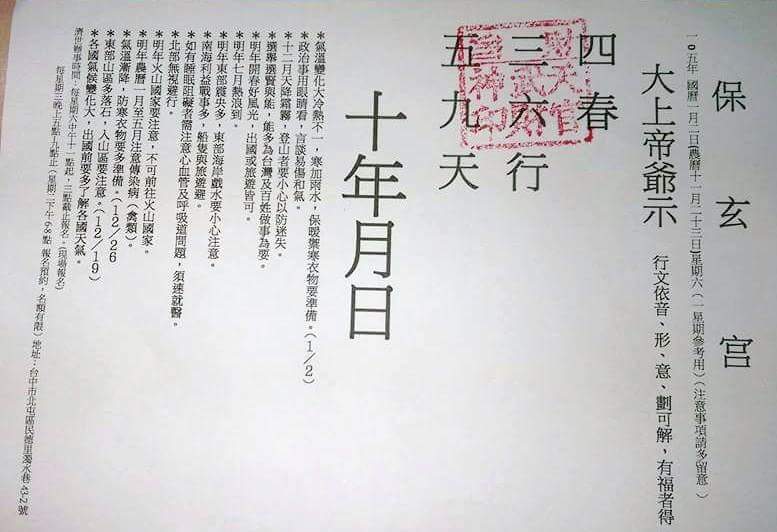 保玄宮
一０五年 國曆一月二日(農曆十一月二十三日)星期六(一星期參考用)(注意事項請多留意)
大上帝爺示 行文依音、形、意、劃可解，有福者得
四春
三六行
五九天
十年月日
＊氣溫變化大冷熱不一，寒加雨水，保暖禦寒衣物要準備。(1/2)
＊政治事用眼睛看，言談易傷和氣。
＊十二月天降霜霧，登山者要小心以防迷失。
＊選舉選賢與能，能多為台灣及百姓做事為要。
＊明年開春好風光，出國或旅遊皆可。
＊明年七月熱浪到。
＊明年東部震央多，東部海岸戲水要小心注意。
＊南海利益戰事多，船隻與旅遊避。
＊如有睡眠阻礙者需注意心血管及呼吸道問題，須速就醫。
＊北部無視避行。
＊明年火山國家要注意，不可前往火山國家。
＊明年農曆一月至五月注意傳染病(禽類)。
＊氣溫漸降，防寒衣物要多準備。(12/26
＊東部山區多落石，入山區要注意。(12/19)
＊各國氣候變化大，出國前要多了解各國天氣。
濟世辦事時間：每星期六中午十二點起，三點截止報名。(現場報名)
每星期三晚上五點十九點止(星期二下午6-8點 報名預約，名額有限) 地址：台中市北屯區民德里濁水巷43-2號